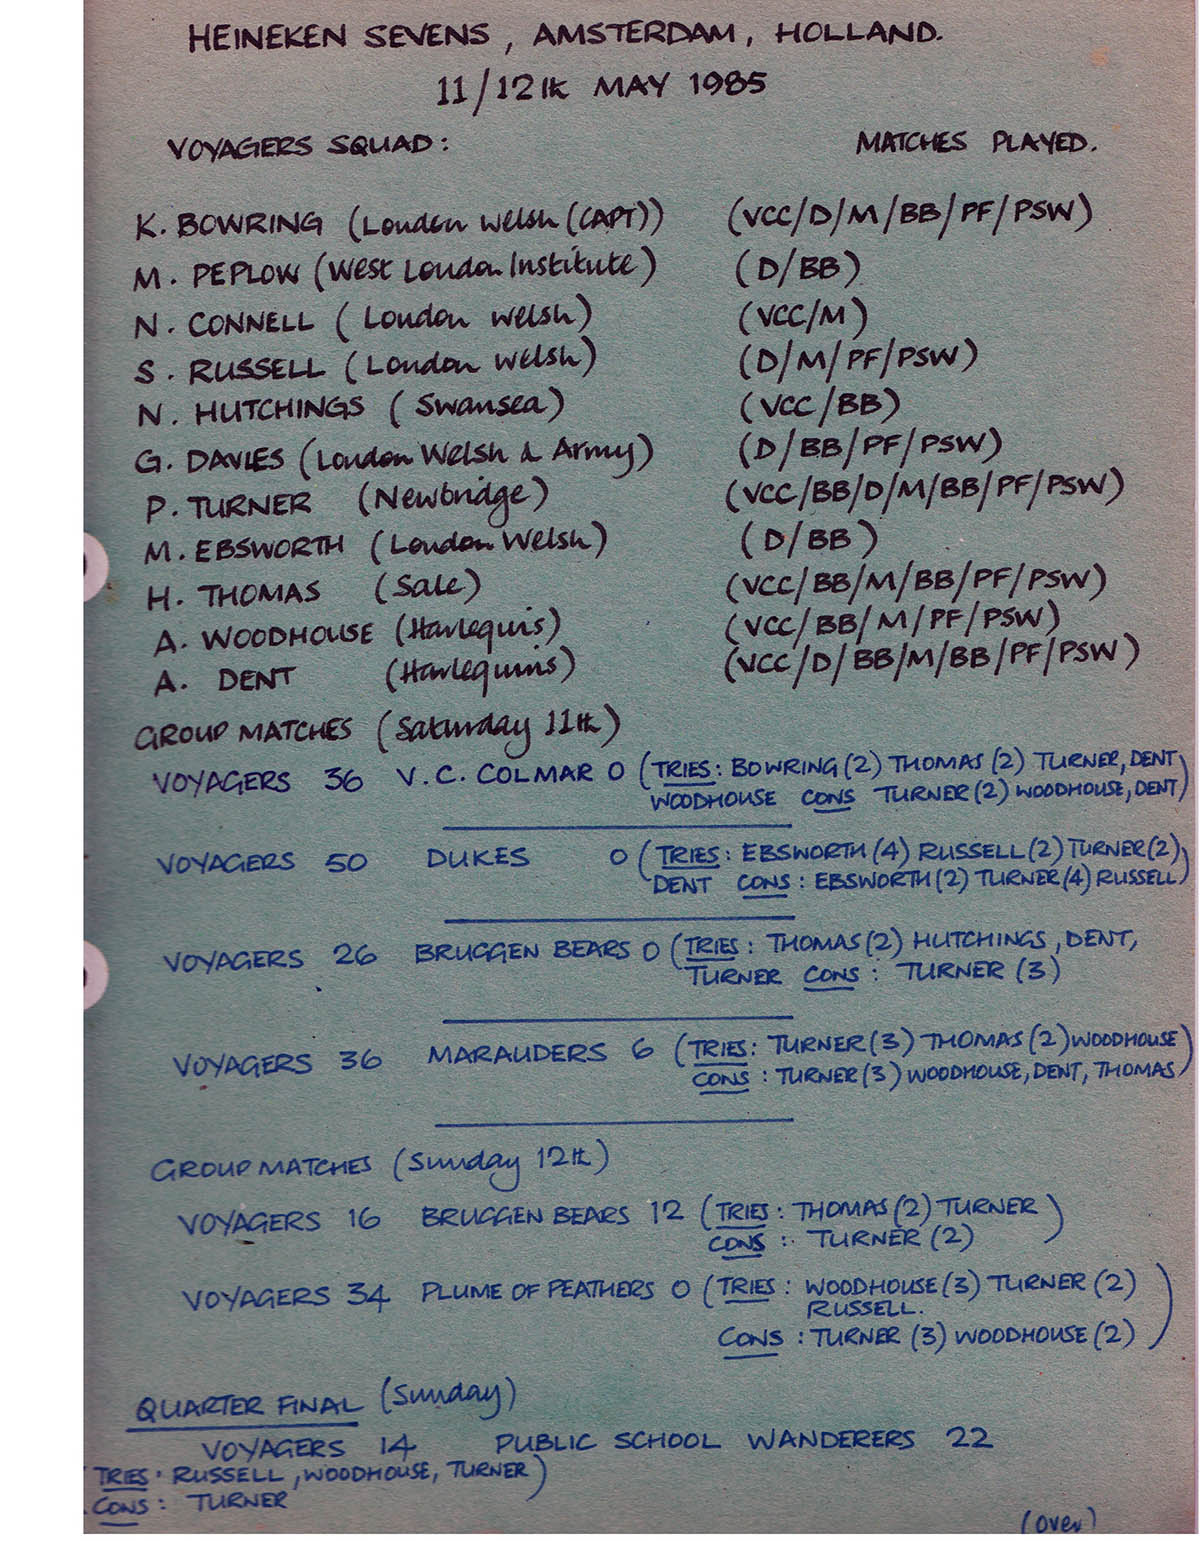 HEINEKEN SEVENS, AMSTERDAM, HOLLAND.
11/12th MAY 1985
VOYAGERS SQUAD: MATCHES PLAYED.
K. BOWRING (London Welsh (CAPT)) (VCC/D/M/BB/PF/PSW)
M. PEPLOW (West London Institute) (D/BB)
N. CONNELL (London Welsh) (VCC/M)
S. RUSSELL (London Welsh) (D/M/PF/PSW)
N. HUTCHINGS (Swansea) (VCC/BB)
G. DAVIES (London Welsh & Army) (D/BB/PF/PSW)
P. TURNER (Newbridge) (VCC/BB/D/M/BB/PF/PSW)
M. EBSWORTH (London Welsh) (D/BB)
H. THOMAS (Sale) (VCC/BB/M/BB/PF/PSW)
A. WOODHOUSE (Harlequis) (VCC/BB/M/PF/PSW)
A. DENT (Harlequins) (VCC/D/BB/M/BB/PF/PSW)
GROUP MATCHES (Saturday 11th)
VOYAGERS 36 V.C. COLMAR 0 (TRIES: BOWRING(2) THOMAS(2) TURNER, DENT,
WOODHOUSE CONS TURNER(2) WOODHOUSE, DENT)
VOYAGERS 50 DUKES 0 (TRIES: EBSWORTH(4) RUSSELL(2) TURNER(2),
DENT CONS: EBSWORTH(2) TURNER(4) RUSSELL)
VOYAGERS 26 BRUGGEN BEARS 0 (TRIES: THOMAS(2) HUTCHINGS, DENT,
TURNER CONS: TURNER (3)
VOYAGERS 36 MARAUDERS 6 (TRIES: TURNER(3) THOMAS(2) WOODHOUSE
CONS: TURNER(3) WOODHOUSE, DENT, THOMAS)
GROUP MATCHES (Sunday 12th)
VOYAGERS 16 BRUGGEN BEARS 12 (TRIES: THOMAS(2) TURNER
CONS: TURNER (2))
VOYAGERS 34 PLUME OF PEATHERS 0 (TRIES: WOODHOUSE(3) TURNER (2)
RUSSELL.
CONS: TURNER (3) WOODHOUSE (2))
QUARTER FINAL (Sunday)
VOYAGERS 14 PUBLIC SCHOOL WANDERERS 22
(TRIES: RUSSELL, WOODHOUSE, TURNER)
CONS: TURNER
(over)